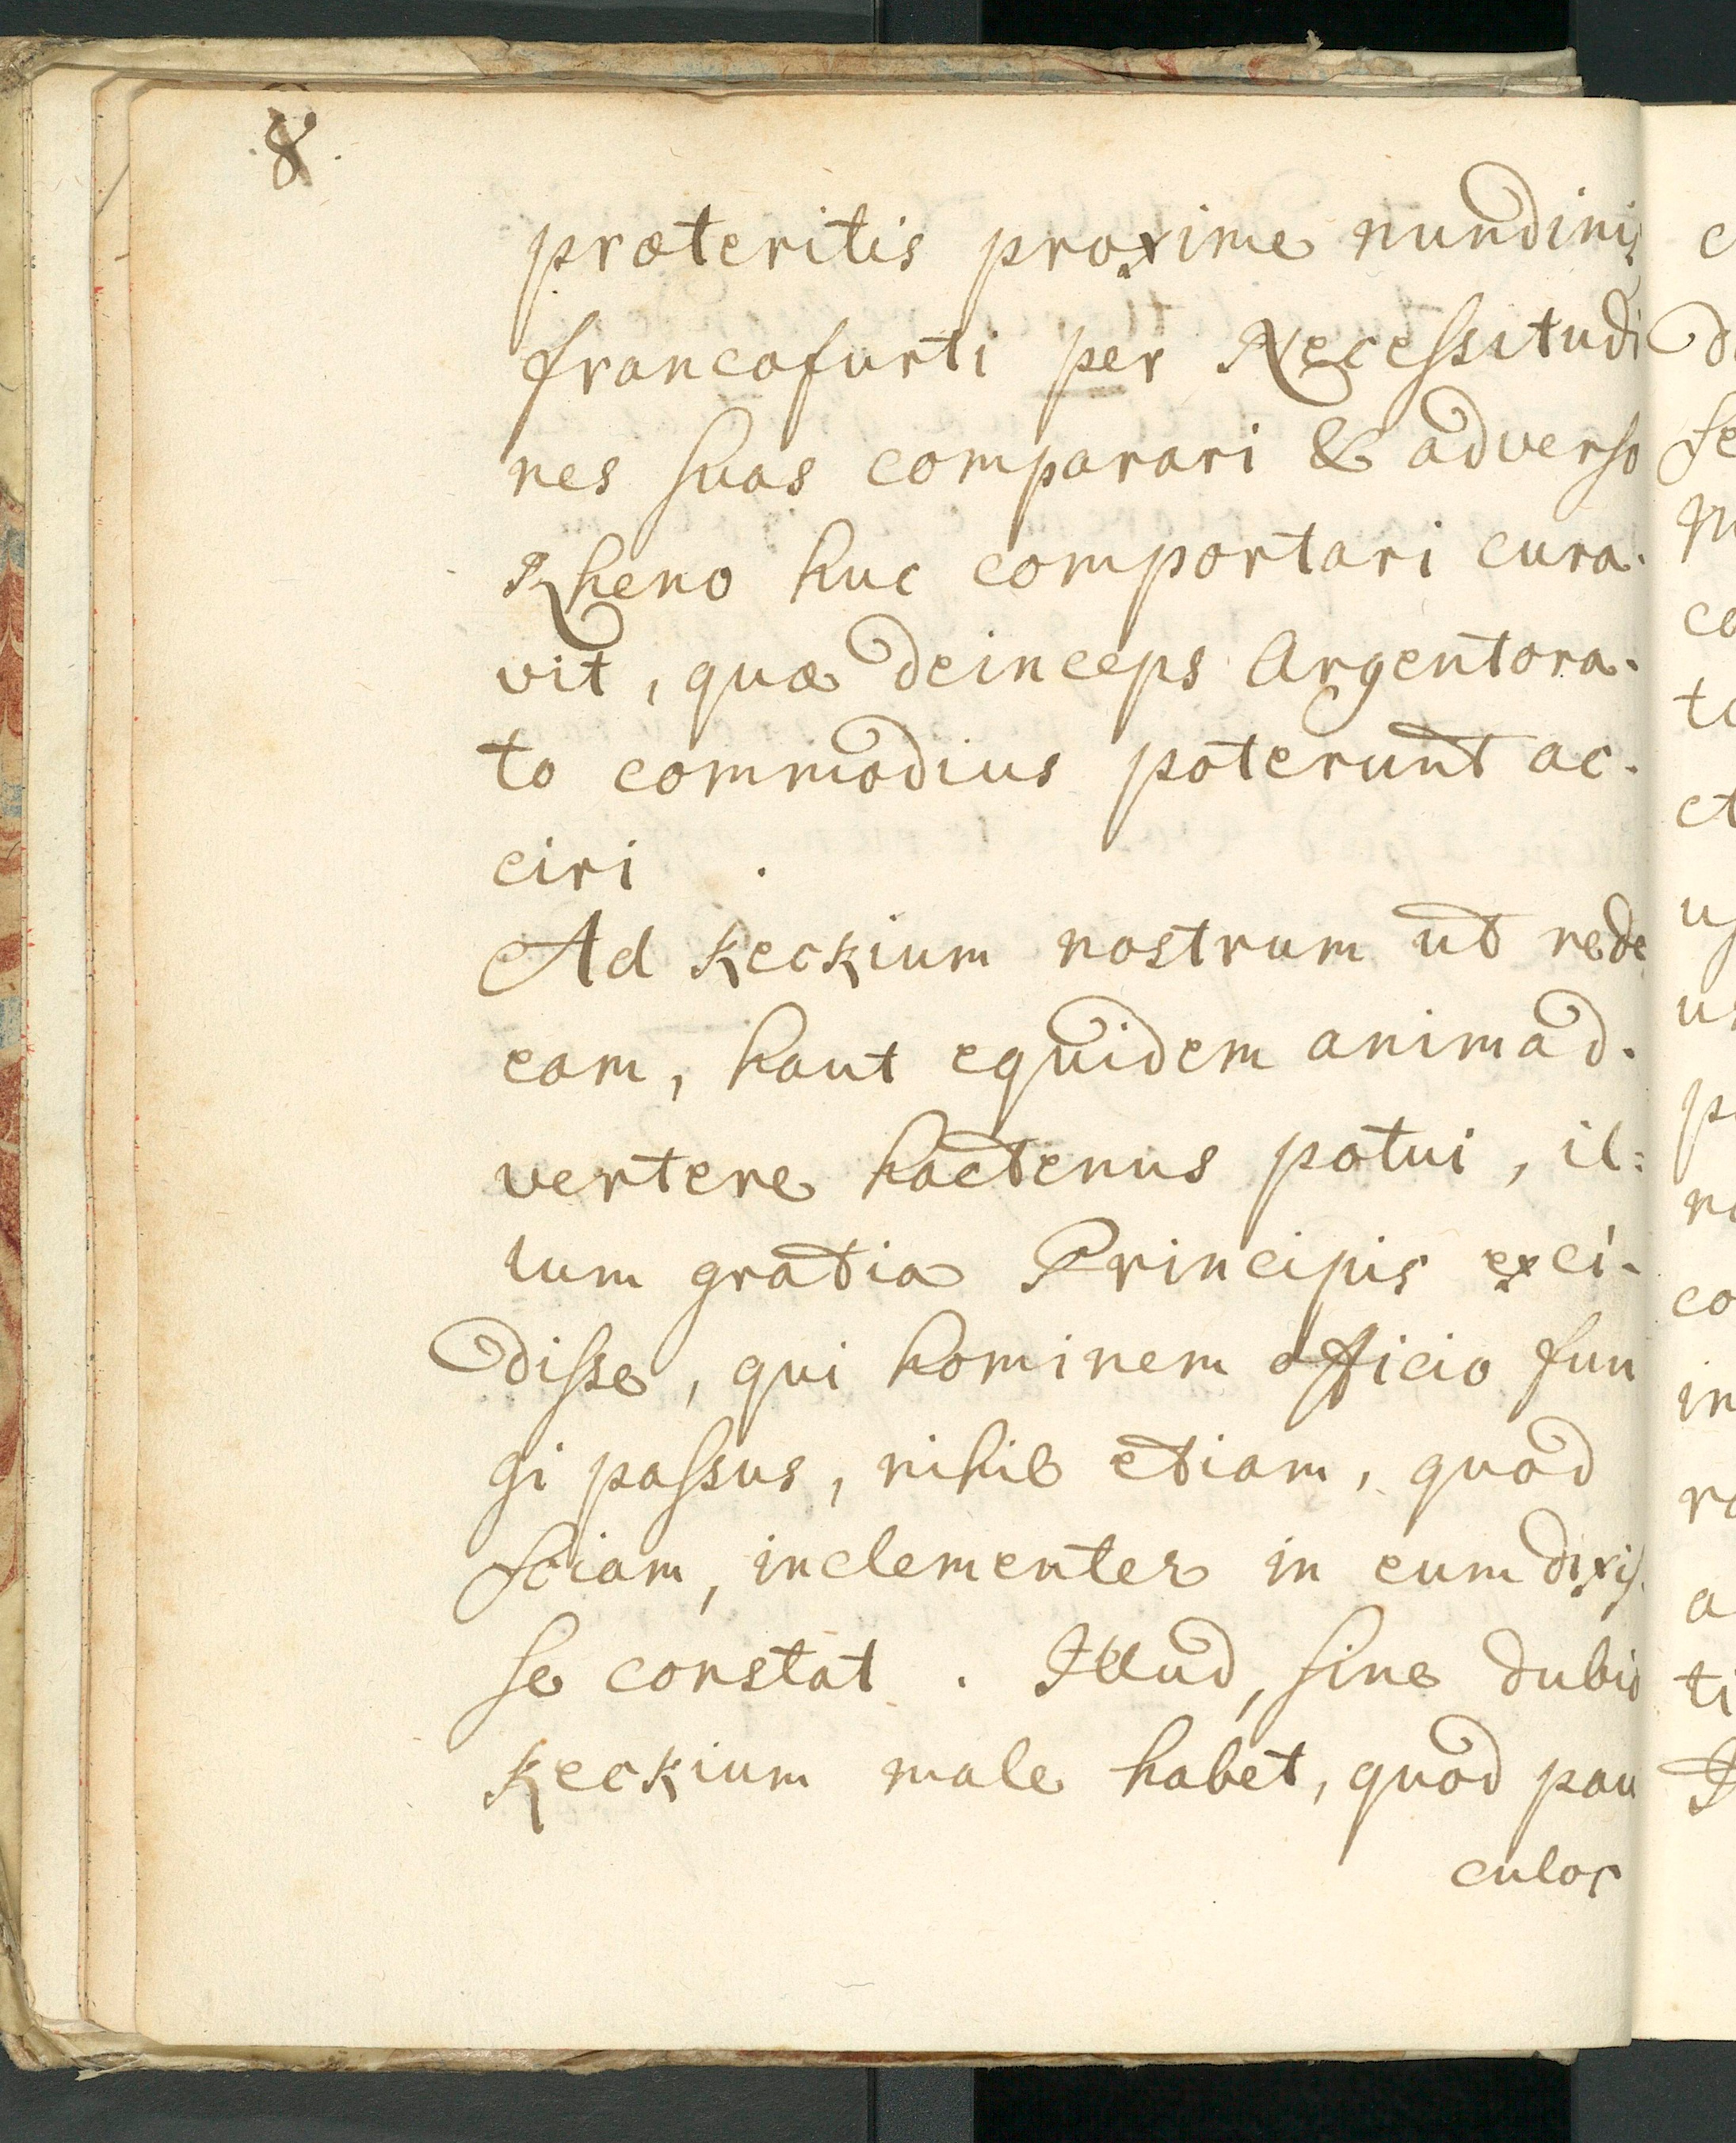 .8.
præteritis proxime nundinis
francofurti per Necessitudi
nes suas comparari & adverso
Rheno huc comportari cura.
vit, quæ deinceps Argentora.
to commodius poterunt ac.
ciri .
Ad Keckium nostrum ut rede
eam, haut equidem animad.
vertere hactenus potui, il:
lum gratia Principis exci.
disse, qui hominem officio fun
gi passus, nihil etiam, quod
sciam, inclementer in eum dixis.
se constat . Illud, sine dubio
Keckium male habet, quod pau
culos